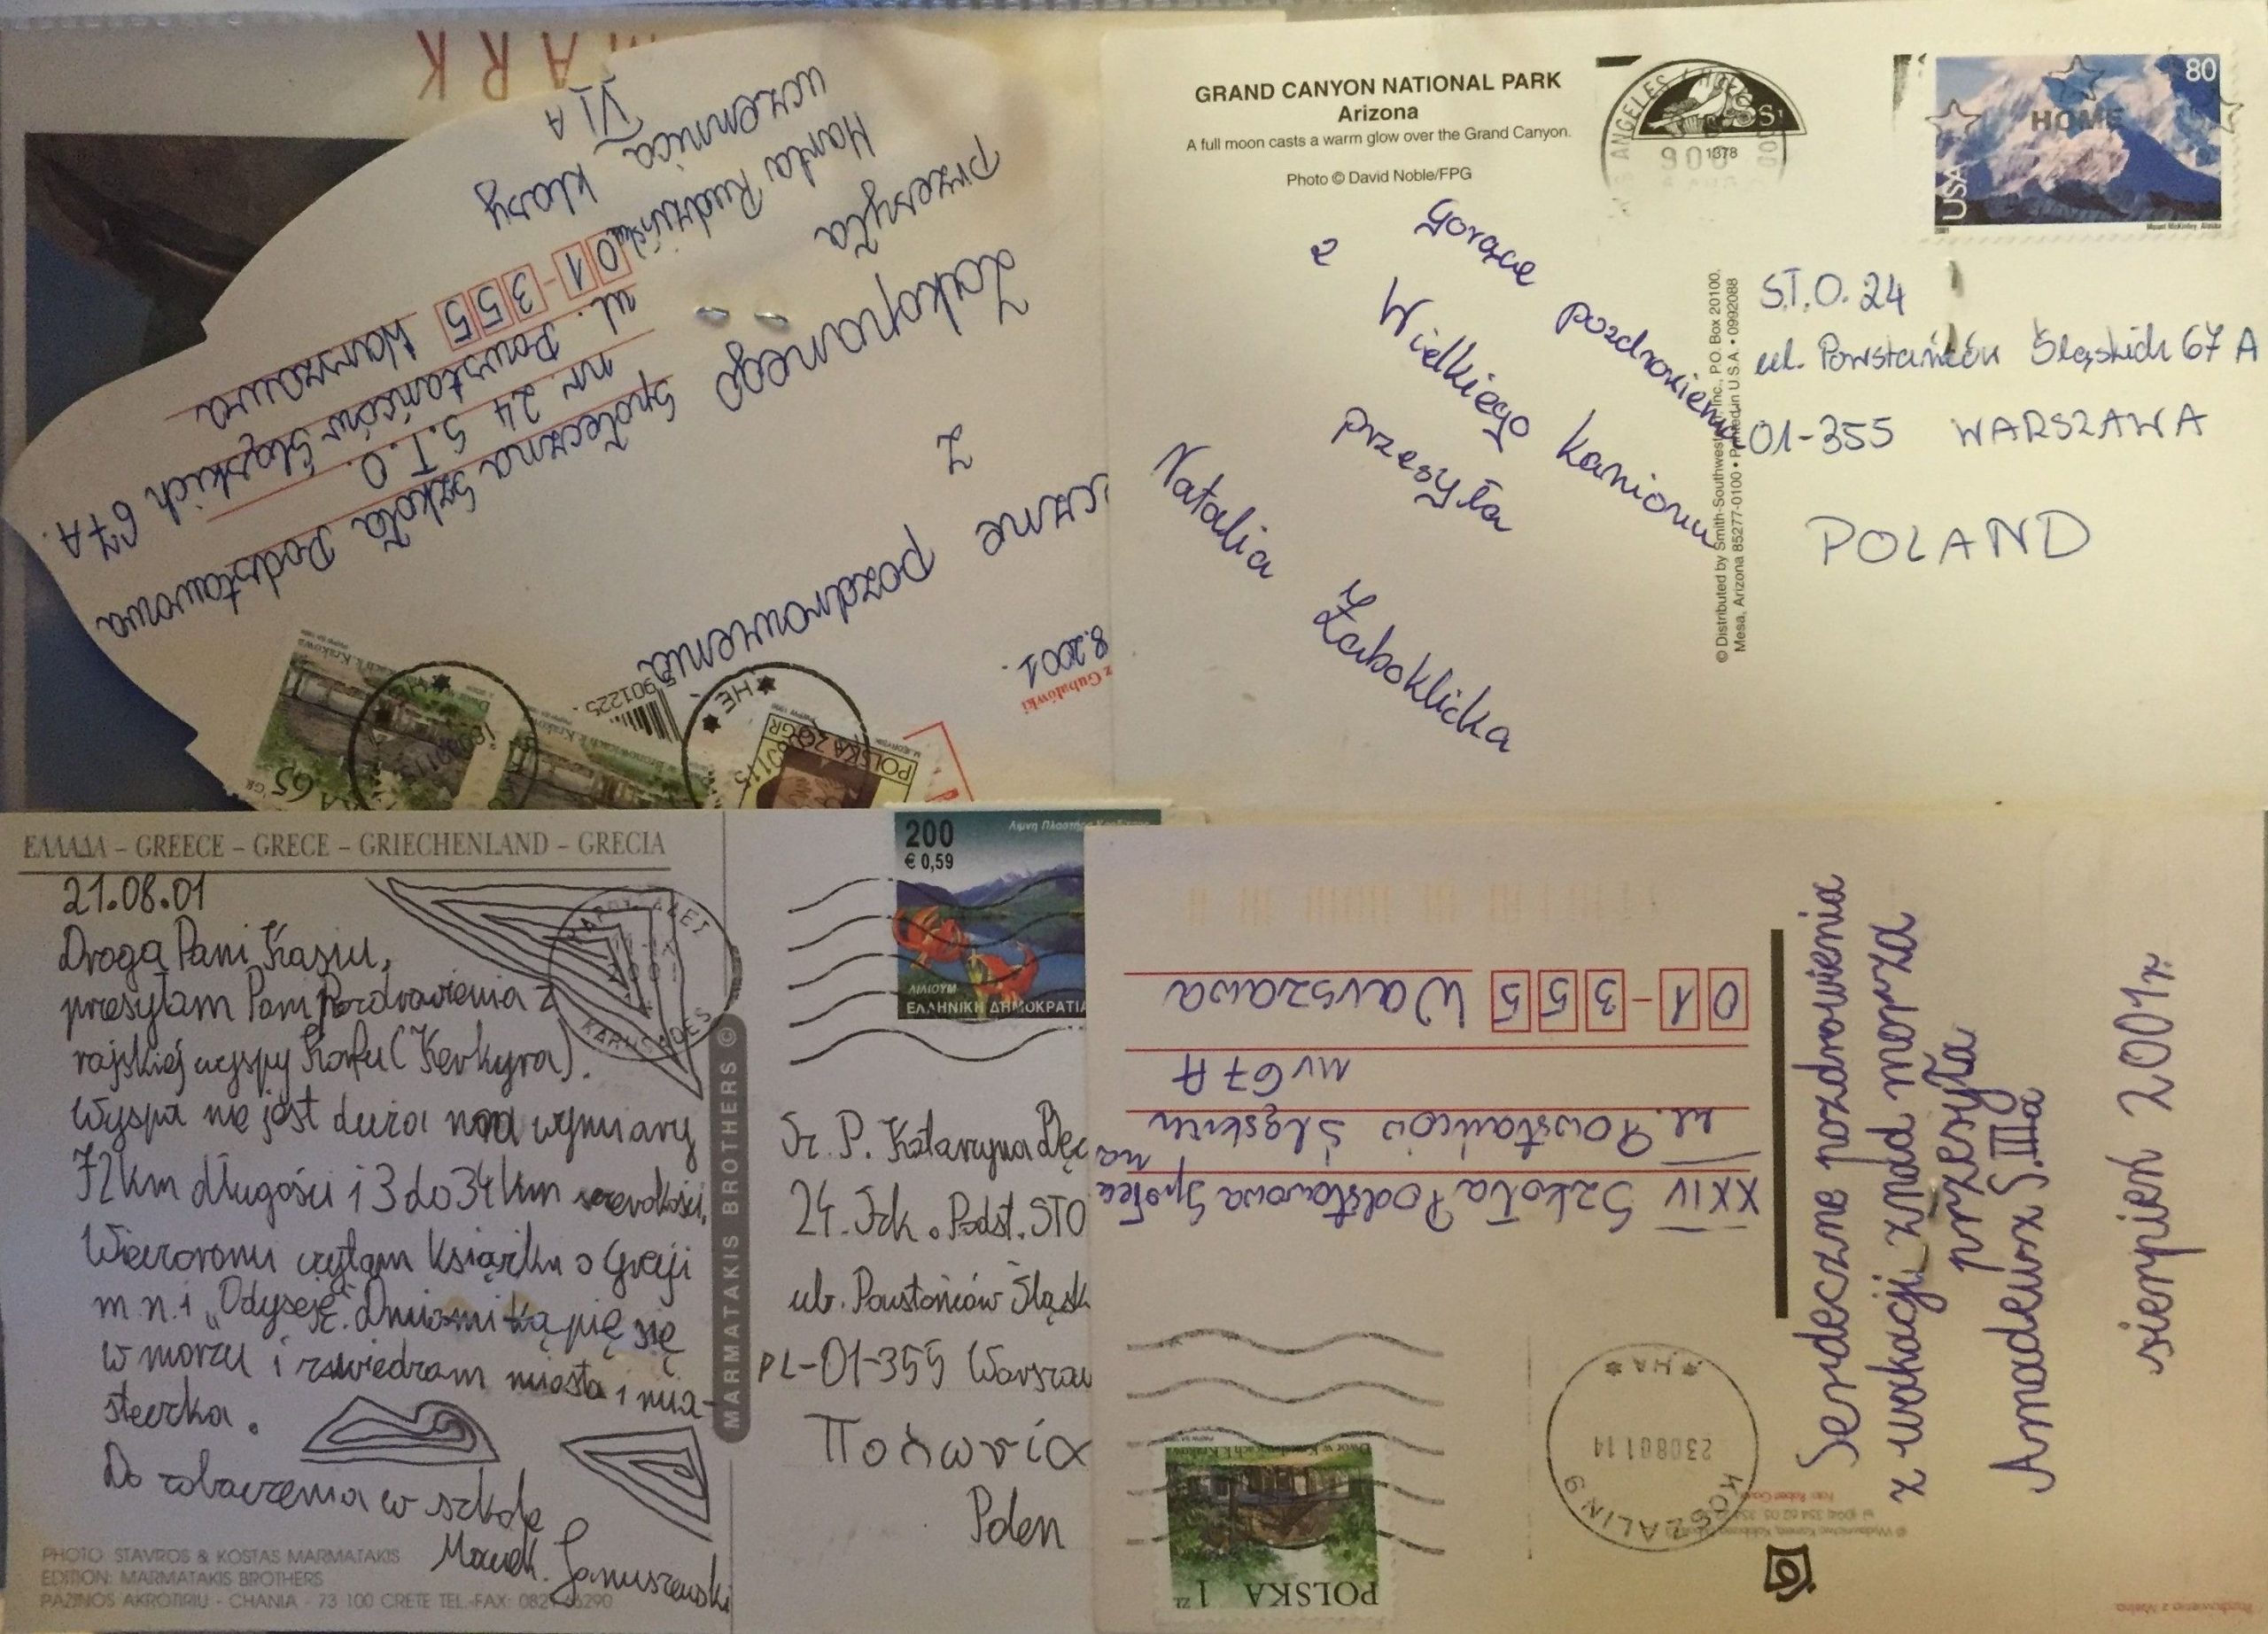 MARK
z Gubałówki
8.2001.
pozdrowienia
z
Zakopanego
przesyła
Marta Rudzińska
uczennica klasy
VI A
Społeczna Szkoła Podstawowa
nr. 24 S.T.O.
ul. Powstańców Śląskich 67A.
01-355 Warszawa
901225
POLSKA 20 GR
65 GR
GRAND CANYON NATIONAL PARK
Arizona
A full moon casts a warm glow over the Grand Canyon.
Photo © David Noble/FPG
ANGELES
1378
80
HOME
USA
2001
Mount McKinley, Alaska
Gorące pozdrowienia
z Wielkiego Kanionu
przesyła
Natalia Żaboklicka
© Distributed by Smith-Southwestern, Inc., P.O. Box 20100,
Mesa, Arizona 85277-0100 • Printed in U.S.A. • 0992088
S.T.O. 24
ul. Powstańców Śląskich 67 A
01-355 WARSZAWA
POLAND
ΕΛΛΑΔΑ – GREECE – GRECE – GRIECHENLAND – GRECIA
21.08.01
Droga Pani Kasiu,
przesyłam Pani Pozdrowienia z
rajskiej wyspy Korfu (Kerkyra).
Wyspa nie jest duża ma wymiary
72km długości i 3 do 34 km szerokości.
Wieczorami czytam książki o Grecji
m.n.i „Odyseję". Dniami kąpię się
w morzu i zwiedzam miasta i mia-
steczka.
Do zobaczenia w szkole
Marek Januszewski
KARUSADES
PHOTO: STAVROS & KOSTAS MARMATAKIS
EDITION: MARMATAKIS BROTHERS
PAZINOS AKROTIRIU - CHANIA - 73 100 CRETE TEL.-FAX: 0821 66290
MARMATAKIS BROTHERS ©
200
€ 0,59
Λίμνη Πλαστήρα
ΛΙΛΙΟΥΜ
ΕΛΛΗΝΙΚΗ ΔΗΜΟΚΡΑΤΙΑ
Sz. P. Katarzyna
24. Szk. Podst. STO
ul. Powstańców Śląsk
PL-01-355 Warszaw
Πολωνία
Polen
Serdeczne pozdrowienia
z wakacji znad morza
przesyła
Amadeusz S. IIIa
sierpień 2001r.
XXIV Szkoła Podstawowa Społecz
na
ul. Powstańców Śląskich
nr 67 A
01-355 Warszawa
KOSZALIN 9
230801 14
* HA *
POLSKA 1 ZŁ
Pozdrowienia z Mielna